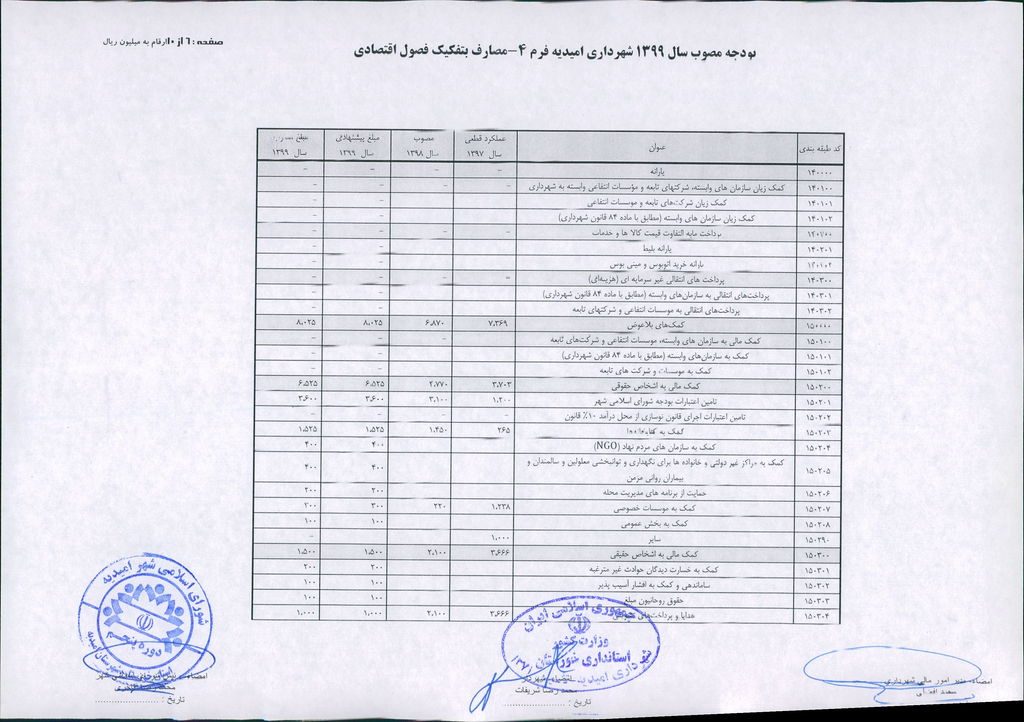 صفحه : ۶ از ۱۰ ارقام به میلیون ریال
بودجه مصوب سال ۱۳۹۹ شهرداری امیدیه فرم ۴-مصارف بتفکیک فصول اقتصادی
کد طبقه بندی عنوان عملکرد قطعی سال ۱۳۹۷ مصوب سال ۱۳۹۸ مبلغ پیشنهادی سال ۱۳۹۹ مبلغ سال ۱۳۹۹
۱۴۰۰۰۰ یارانه - - - -
۱۴۰۱۰۰ کمک زیان سازمان های وابسته، شرکتهای تابعه و مؤسسات انتفاعی وابسته به شهرداری - - - -
۱۴۰۱۰۱ کمک زیان شرکت‌های تابعه و موسسات انتفاعی - -
۱۴۰۱۰۲ کمک زیان سازمان های وابسته (مطابق با ماده ۸۴ قانون شهرداری) - -
۱۴۰۲۰۰ پرداخت مابه التفاوت قیمت کالا ها و خدمات - - - -
۱۴۰۲۰۱ یارانه بلیط - -
۱۴۰۲۰۲ یارانه خرید اتوبوس و مینی بوس - -
۱۴۰۳۰۰ پرداخت های انتقالی غیر سرمایه ای (هزینه‌ای) - - - -
۱۴۰۳۰۱ پرداخت‌های انتقالی به سازمان‌های وابسته (مطابق با ماده ۸۴ قانون شهرداری) - -
۱۴۰۳۰۲ پرداخت‌های انتقالی به موسسات انتفاعی و شرکتهای تابعه - -
۱۵۰۰۰۰ کمک‌های بلاعوض ۷،۳۶۹ ۶،۸۷۰ ۸،۰۲۵ ۸،۰۲۵
۱۵۰۱۰۰ کمک مالی به سازمان های وابسته، موسسات انتفاعی و شرکت‌های تابعه - - - -
۱۵۰۱۰۱ کمک به سازمان‌های وابسته (مطابق با ماده ۸۴ قانون شهرداری) - -
۱۵۰۱۰۲ کمک به موسسات و شرکت های تابعه - -
۱۵۰۲۰۰ کمک مالی به اشخاص حقوقی ۳،۷۰۳ ۴،۷۷۰ ۶،۵۲۵ ۶،۵۲۵
۱۵۰۲۰۱ تامین اعتبارات بودجه شورای اسلامی شهر ۱،۲۰۰ ۳،۱۰۰ ۳،۶۰۰ ۳،۶۰۰
۱۵۰۲۰۲ تامین اعتبارات اجرای قانون نوسازی از محل درآمد ۱۰٪ قانون - - - -
۱۵۰۲۰۳ کمک به ۲۶۵ ۱،۴۵۰ ۱،۵۲۵ ۱،۵۲۵
۱۵۰۲۰۴ کمک به سازمان های مردم نهاد (NGO) ۴۰۰ ۴۰۰
۱۵۰۲۰۵ کمک به مراکز غیر دولتی و خانواده ها برای نگهداری و توانبخشی معلولین و سالمندان و ۴۰۰ ۴۰۰
بیماران روانی مزمن
۱۵۰۲۰۶ حمایت از برنامه های مدیریت محله ۲۰۰ ۲۰۰
۱۵۰۲۰۷ کمک به موسسات خصوصی ۱،۲۳۸ ۲۲۰ ۳۰۰ ۳۰۰
۱۵۰۲۰۸ کمک به بخش عمومی ۱۰۰ ۱۰۰
۱۵۰۲۹۰ سایر ۱،۰۰۰ -
۱۵۰۳۰۰ کمک مالی به اشخاص حقیقی ۳،۶۶۶ ۲،۱۰۰ ۱،۵۰۰ ۱،۵۰۰
۱۵۰۳۰۱ کمک به خسارت دیدگان حوادث غیر مترقبه ۲۰۰ ۲۰۰
۱۵۰۳۰۲ ساماندهی و کمک به اقشار آسیب پذیر ۱۰۰ ۱۰۰
۱۵۰۳۰۳ حقوق روحانیون مبلغ ۱۰۰ ۱۰۰
۱۵۰۳۰۴ هدایا و پرداخت‌های ۳،۶۶۶ ۲،۱۰۰ ۱،۰۰۰ ۱،۰۰۰
شورای اسلامی شهر امیدیه
دوره پنجم
جمهوری اسلامی ایران
وزارت کشور
استانداری خوزستان
شهرداری امیدیه
امضاء مدیر امور مالی شهرداری
محمد رضا شریفات
تاریخ :
امضاء
تاریخ :